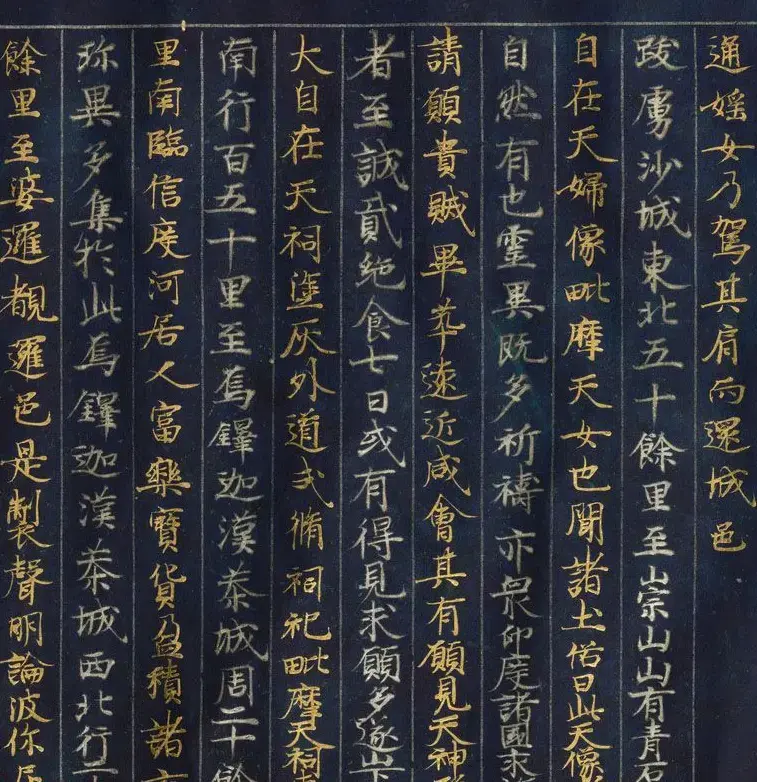 通婬女乃駕其肩而還城邑
跋虜沙城東北五十餘里至崇山山有青石
自在天婦像毗摩天女也聞諸土俗曰此天像
自然有也靈異既多祈禱亦衆印度諸國求
請願貴賎畢萃遠近咸會其有願見天神
者至誠貳絶食七日或有得見求願多遂山下
大自在天祠塗灰外道式脩祠祀毗摩天祠
南行百五十里至烏鐸迦漢茶城周二十餘
里南臨信度河居人富樂寶貨盈積諸
珎異多集於此烏鐸迦漢茶城西北行
餘里至婆邏覩邏邑是製聲明論波你